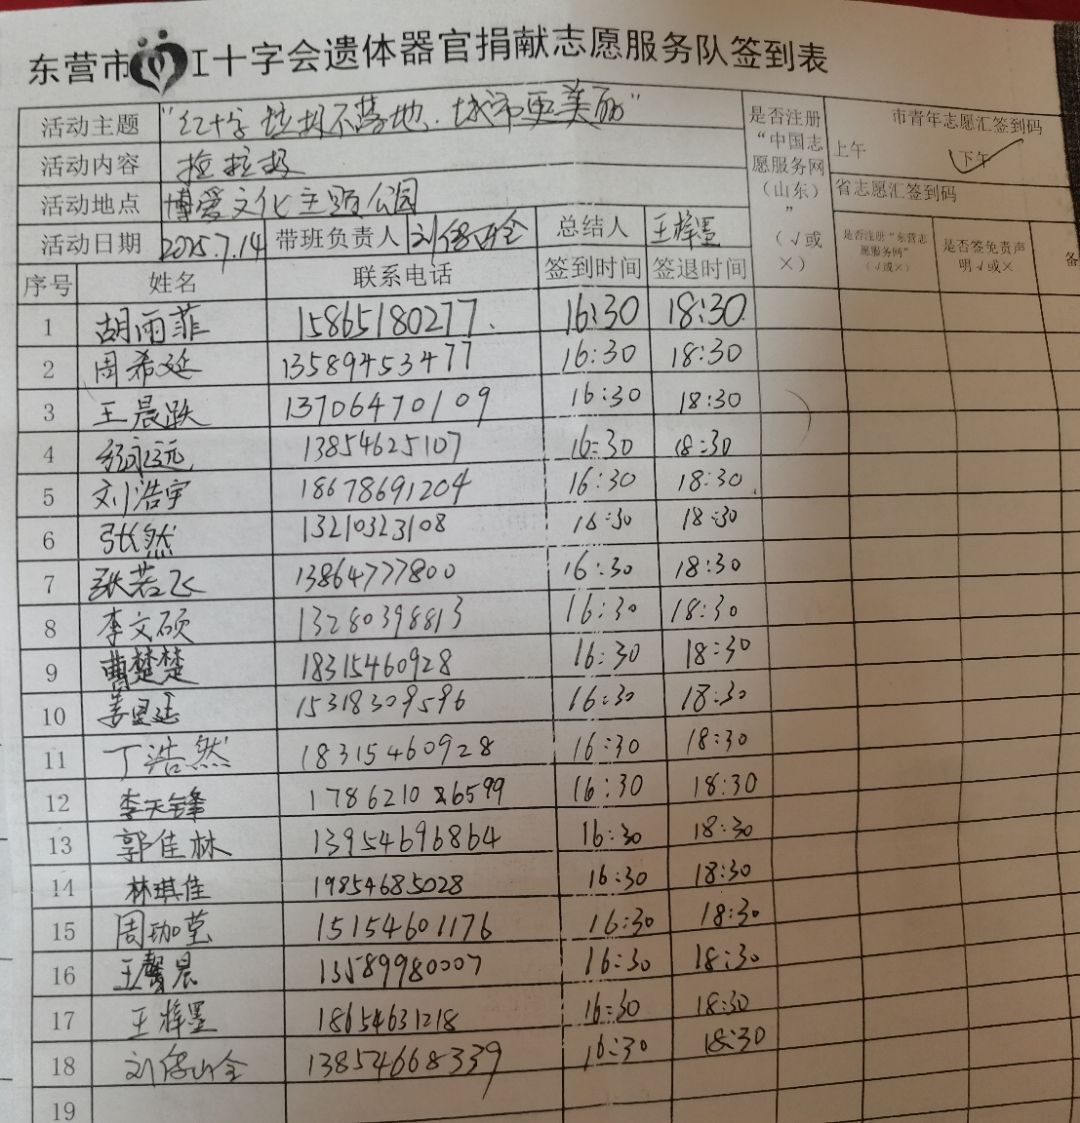 东营市红十字会遗体器官捐献志愿服务队签到表
活动主题 "红十字 垃圾不落地.城市更美丽"
活动内容 捡垃圾
活动地点 博爱文化主题公园
活动日期 2025.7.14 带班负责人 总结人 王梓墨
是否注册“中国志愿服务网（山东）”（√或×）
市青年志愿汇签到码
上午 下午 ✓
省志愿汇签到码
是否注册“东营志愿服务网”（√或×） 是否签免责声明√或× 备
序号 姓名 联系电话 签到时间 签退时间
1 胡雨菲 15865180277. 16:30 18:30
2 周希延 13589453477 16:30 18:30
3 王晨跃 13706470109 16:30 18:30
4 永远 13854625107 16:30 18:30
5 刘浩宇 18678691204 16:30 18:30
6 张然 13210323108 16:30 18:30
7 张若飞 13864777800 16:30 18:30
8 李文硕 13280398813 16:30 18:30
9 曹楚楚 18315460928 16:30 18:30
10 姜 廷 15318309596 16:30 18:30
11 丁浩然 18315460928 16:30 18:30
12 李天锋 1786210 26599 16:30 18:30
13 郭佳林 13954696864 16:30 18:30
14 林琪佳 19854685028 16:30 18:30
15 周珈莹 15154601176 16:30 18:30
16 王馨晨 13589980007 16:30 18:30
17 王梓墨 18654631218 16:30 18:30
18 刘 13854668339 16:30 18:30
19